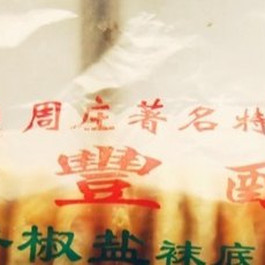 周庄著名特
豐
椒盐袜底